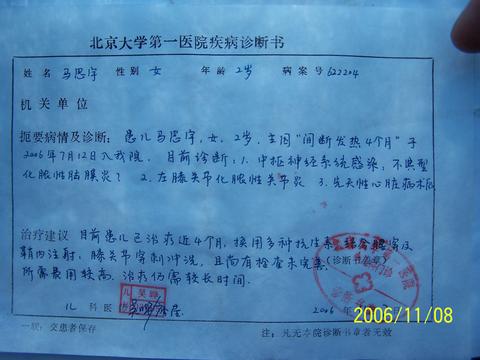 北京大学第一医院疾病诊断书
姓名 马思宇 性别 女 年龄 2岁 病案号 622204
机关单位
扼要病情及诊断：患儿马思宇，女，2岁，主因"间断发热4个月"于
2006年7月12日入我院，目前诊断：1.中枢神经系统感染：不典型
化脓性脑膜炎？ 2.左膝关节化脓性关节炎 3.先天性心脏病术后
治疗建议 目前患儿已治疗近4个月，换用多种抗生素，结合腰穿及
鞘内注射，膝关节穿刺冲洗，且尚有检查未完善，(诊断书盖章)
所需费用较高，治疗仍需较长时间。
儿科医师
2006年
一联：交患者保存
注：凡无本院诊断书章者无效
2006/11/08